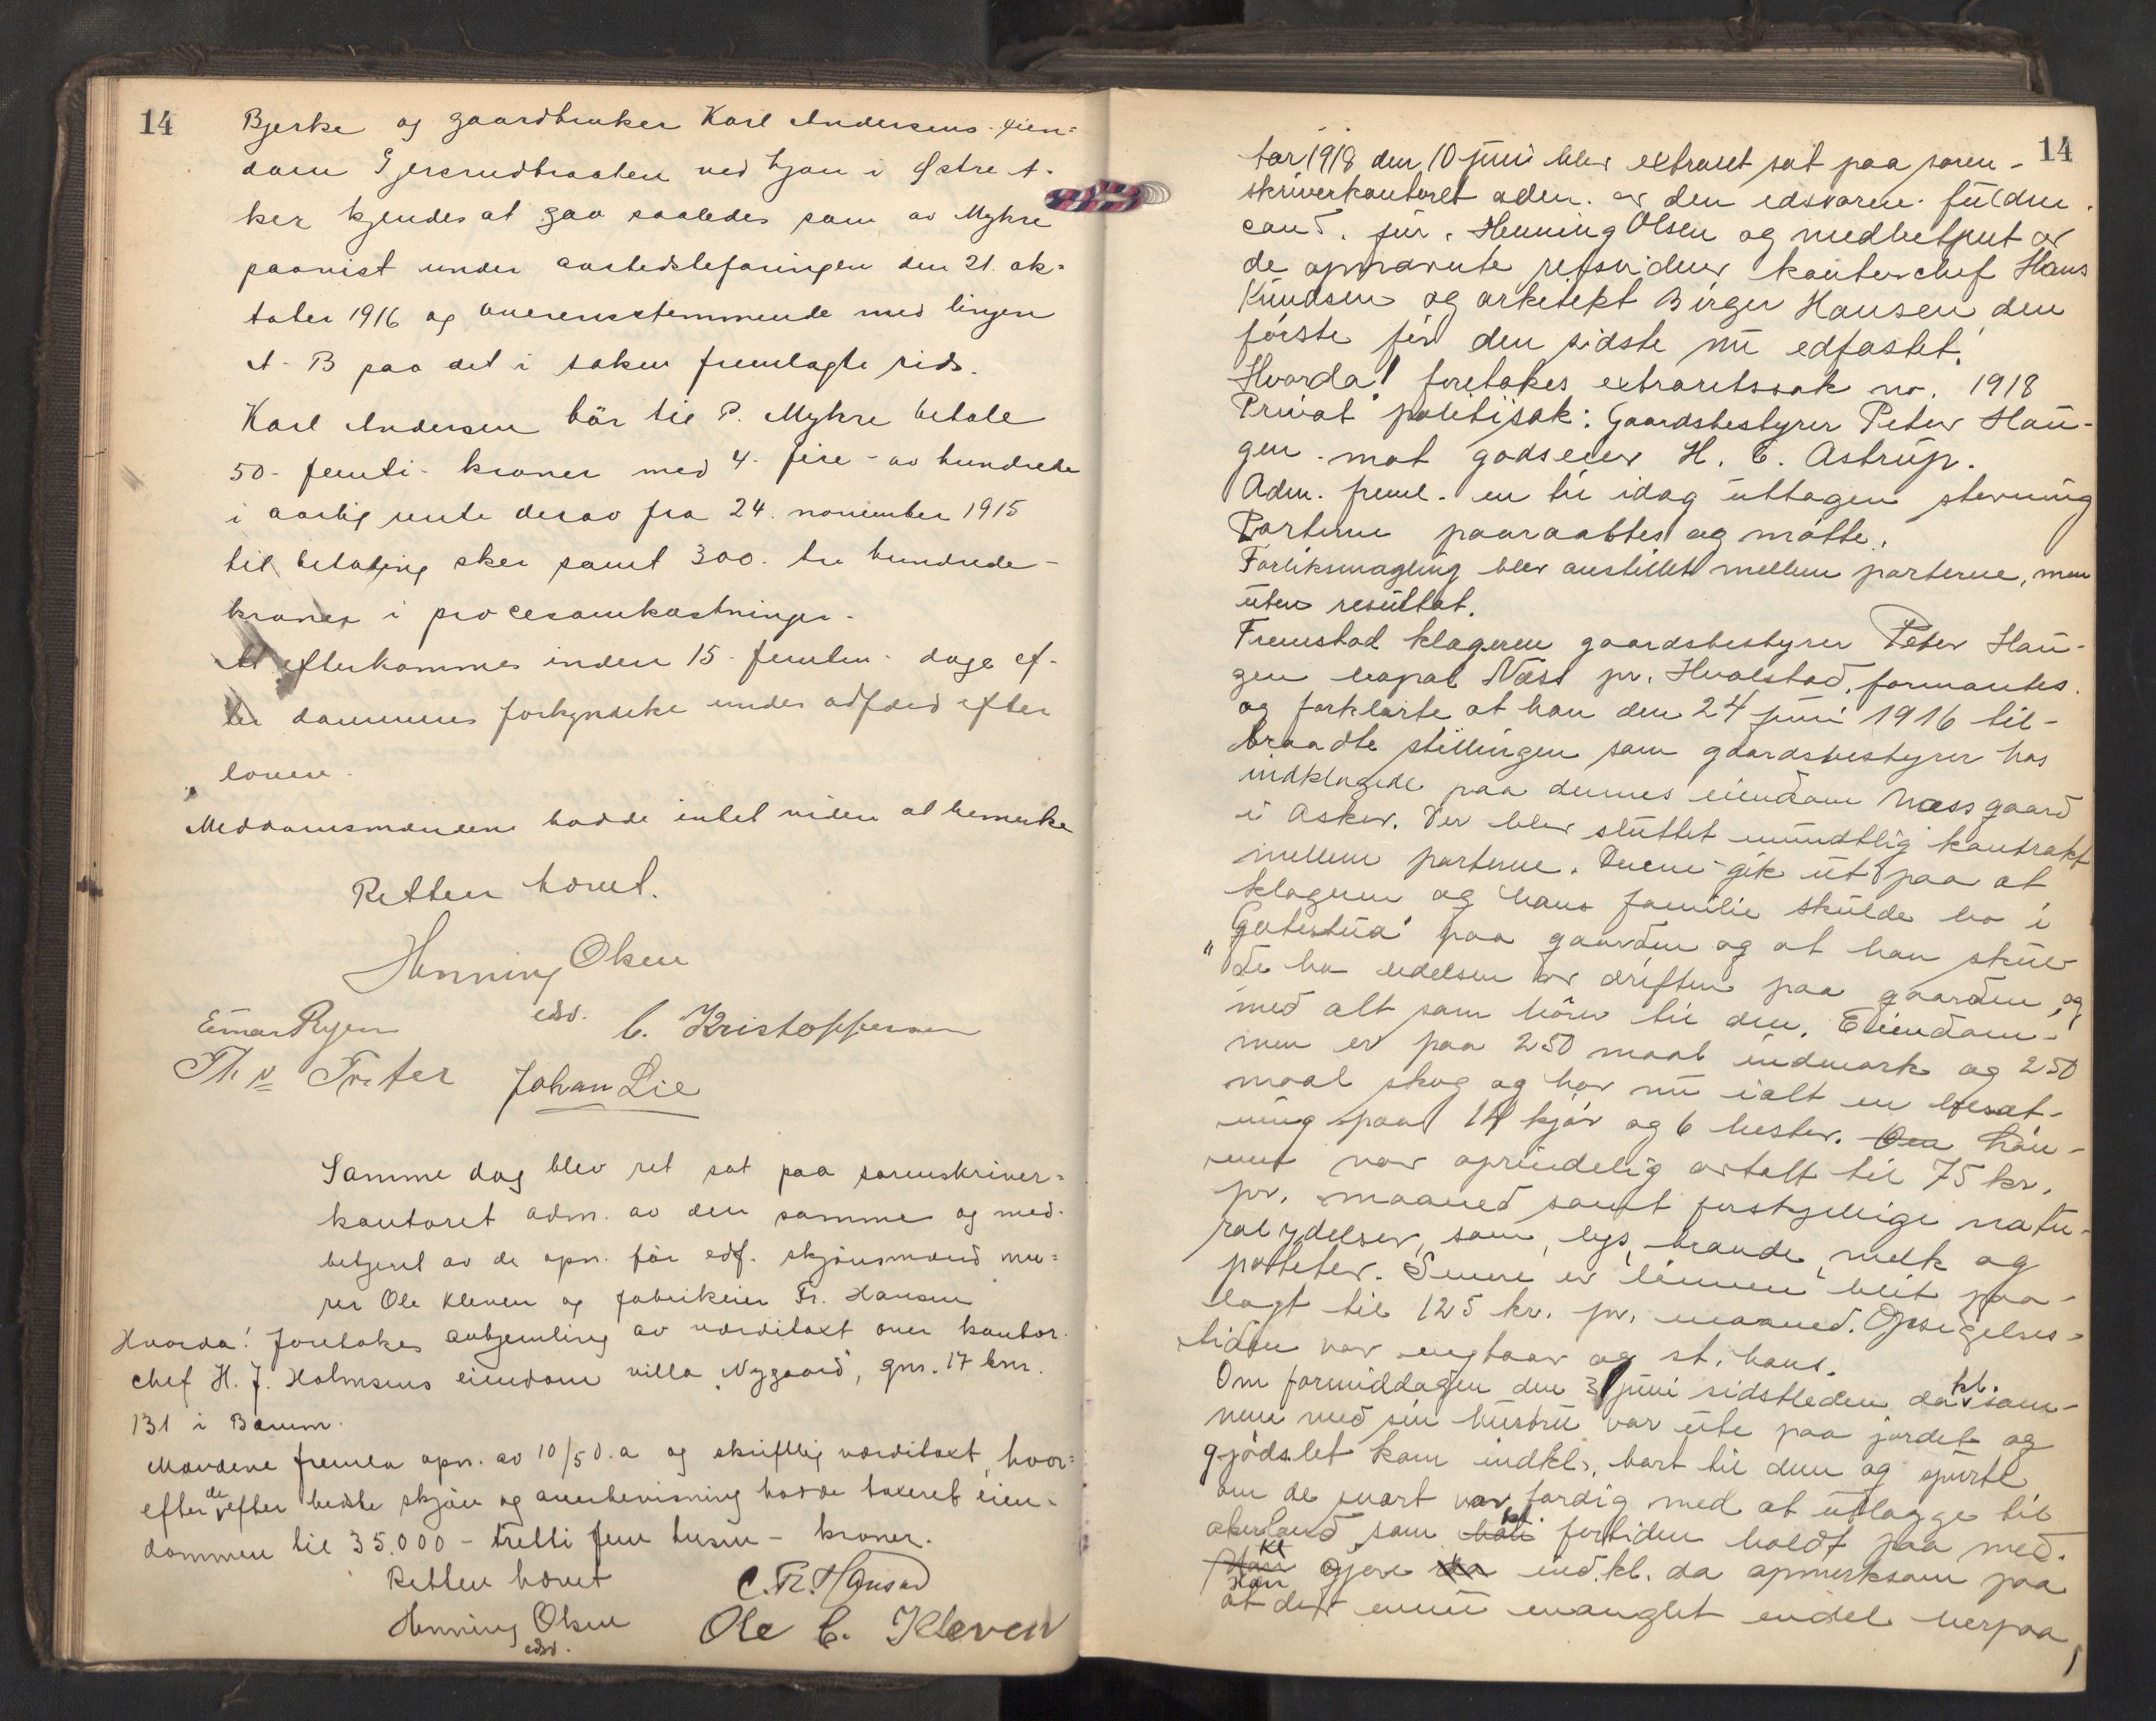 14
Bjerke og gaardbruker Karl Andersens eien=
dom Gjersrudbraaten ved Ljan i Østre A-
ker kjendes at gaa saaledes som av Mykre
paavist under aastedsbefaringen den 21. ok=
tober 1916 og overensstemmende med linjen
A-B paa det i saken fremlagte rids.
Karl Andersen bör til P. Mykre betale
50- femti- kroner med 4- fire- av hundrede
i aarlig rente derav fra 24. november 1915
til betaling sker samt 300. tre hundrede-
kroner i procesomkostninger.
At efterkommes inden 15- femten- dage ef-
ter dommens forkyndelse under adfærd efter
loven.
Meddomsmændene hadde intet videre at bemerke
Retten hævet.
Henning Olsen
edsv.
Einar Ryen C. Kristoffersen
Th. Johan Lie
Samme dag blev ret sat paa sorenskriver=
kontoret adm. av den samme og med-
betjent av de opn. för edf. skjönsmænd mu=
rer Ole Kleven og fabrikeier Fr. Hansen
Hvorda! foretokes avhjemling av værditaxt over kontor-
chef H. J. Holmsens eiendom villa "Nygaard", gnr. 17 bnr.
131 i Bærum.
Mændene fremla opn. av 10/5 d.a. og skriftlig værditaxt, hvor=
efter de efter bedste skjön og overbevisning hadde taxeret eien-
dommen til 35.000 - tretti fem tusen - kroner.
Retten hævet C. Fr. Hansen
Henning Olsen Ole C. Kleven
edsv.
14
Aar 1918 den 10 juni blev extraret sat paa soren-
skriverkontoret adm. av den edsvorne fuldm.
cand. jur. Henning Olsen og medbetjent av
de opnævnte retsvidner kontorchef Hans
Knudsen og arkitekt Birger Hansen, den
förste för den sidste nu edfæstet.
Hvorda! foretokes extraretssak no. 1918
Privat politisak: Gaardsbestyrer Peter Hau-
gen mot godseier H. C. Astrup.
Adm. freml. en til idag uttagen stevning
Parterne paaraabtes og mötte.
Forliksmægling blev anstillet mellem parterne, men
uten resultat.
Fremstod klageren gaardsbestyrer Peter Hau-
gen bopæl Næss pr. Hvalstad, formantes
og forklarte at han den 24 juni 1916 til-
traadte stillingen som gaardsbestyrer hos
indklagede paa dennes eiendom Næss gaard
i Asker. Der blev sluttet mundtlig kontrakt
mellem parterne. Denne gik ut paa at
klageren og hans familie skulde bo i
"Gatestua" paa gaarden og at han skul-
de ha ledelsen av driften paa gaarden, og
med alt som hörer til den. Eiendom-
men er paa 250 maal indmark og 250
maal skog og har nu ialt en besæt-
ning paa 14 kjör og 6 hester. Lön-
nen var oprindelig avtalt til 75 kr.
pr. maaned samt forskjellige natu-
ralydelser, som lys, brænde, melk og
poteter. Senere er lönnen blit paa-
lagt til 125 kr. pr. maaned. Opsigelses-
tiden var nytaar og st. hans.
Om formiddagen den 3 juni sidstleden da kl. sam-
men med sin hustru var ute paa jordet og
gjödslet kom indkl. bort til dem og spurte
om de snart var færdig med at utlægge til
akerland som kl. fortiden holdt paa med.
Kl gjorde ind.kl. da opmerksom paa
at der ennu manglet endel herpaa,